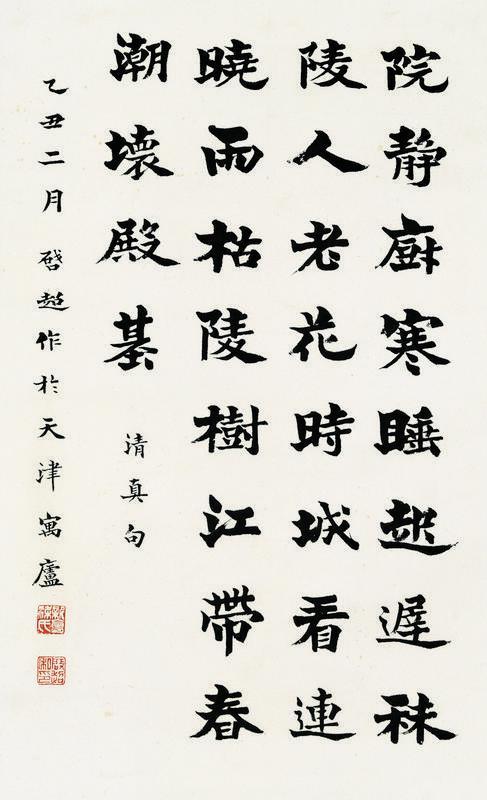 院静廚寒睡起遲秣
陵人老花時城看連
曉雨枯陵樹江帶春
潮壞殿基
清真句
乙丑二月啓超作於天津寓廬